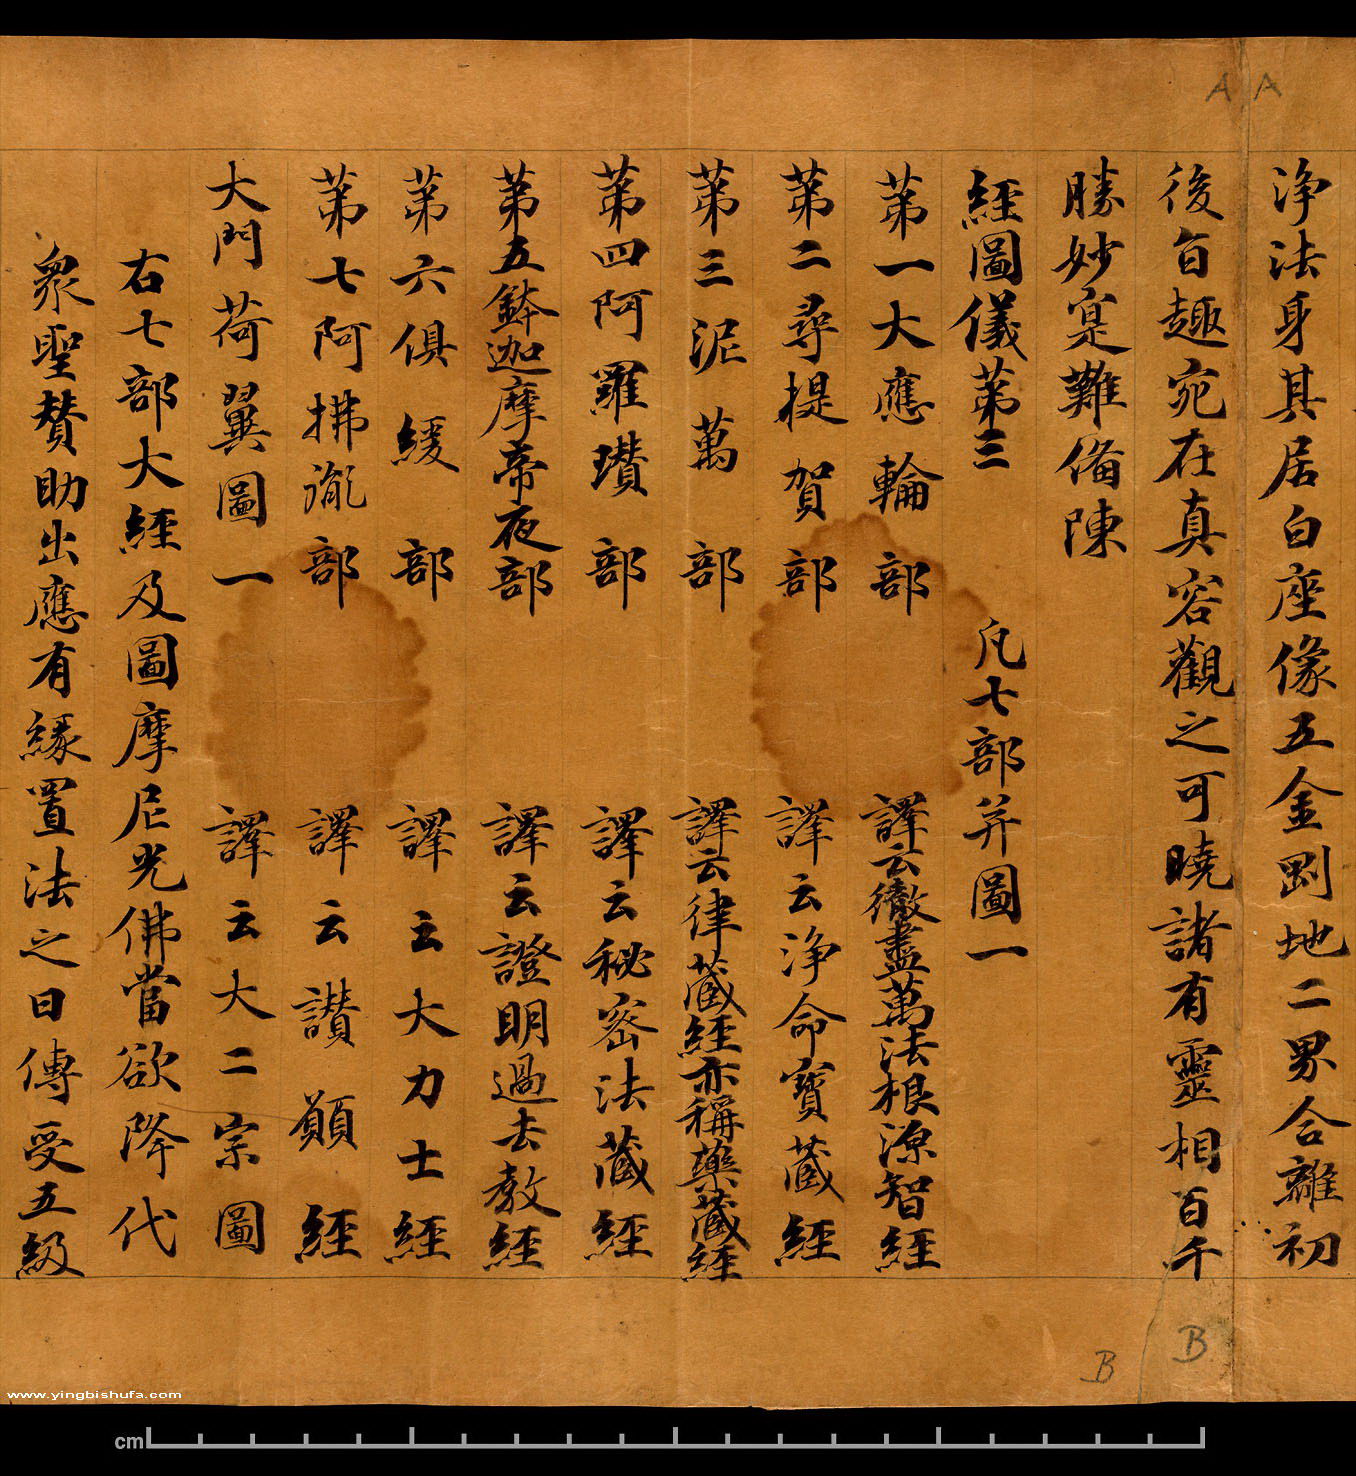 淨法身其居白座像五金剛地二界合離初
後旨趣宛在真容觀之可曉諸有靈相百千
勝妙寔難俻陳
經圖儀苐三 凡七部并圖一
苐一大應輪部 譯云徹盡萬法根源智經
苐二尋提賀部 譯云淨命寶藏經
苐三泥萬部 譯云律藏經亦稱藥藏經
苐四阿羅瓚部 譯云秘密法藏經
苐五鉢迦摩帝夜部 譯云證明過去教經
苐六俱緩部 譯云大力士經
苐七阿拂胤部 譯云讃願經
大門荷翼圖一 譯云大二宗圖
右七部大經及圖摩尼光佛當欲降代
衆聖賛助出應有緣置法之日傳受五級
A A
B B
www.yingbishufa.com
cm